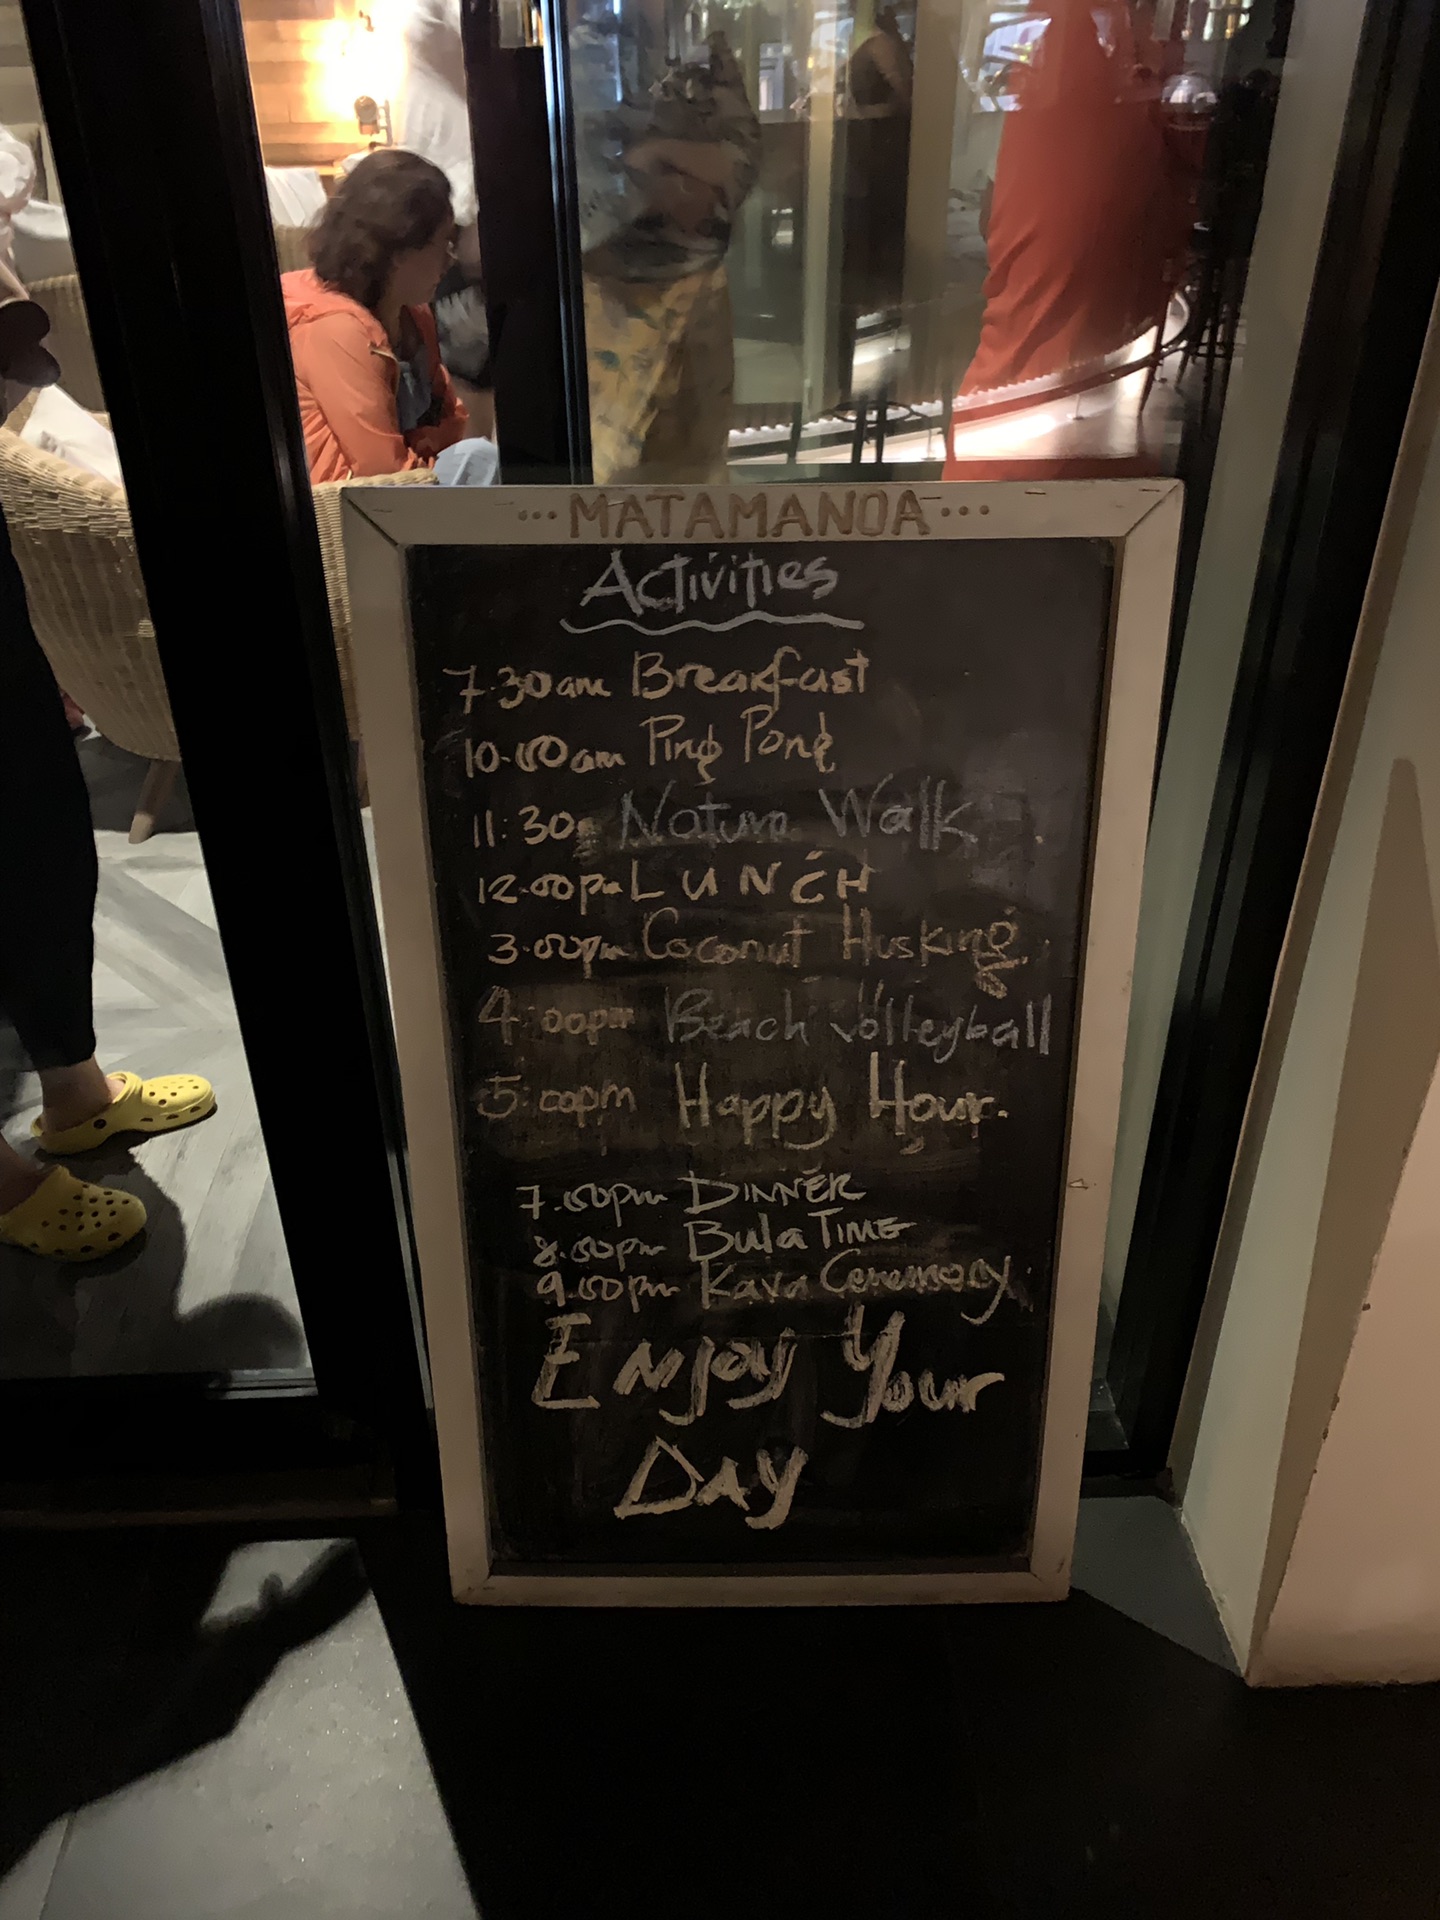 ...MATAMANOA...
Activities
7.30am Breakfast
10.00am Ping Pong
11:30 Nature Walk
12.00pm LUNCH
3.00pm Coconut Husking
4:00pm Beach volleyball
5:00pm Happy Hour.
7.00pm DINNER
8.00pm Bula TIME
9.00pm Kava Ceremony
Enjoy Your
DAy